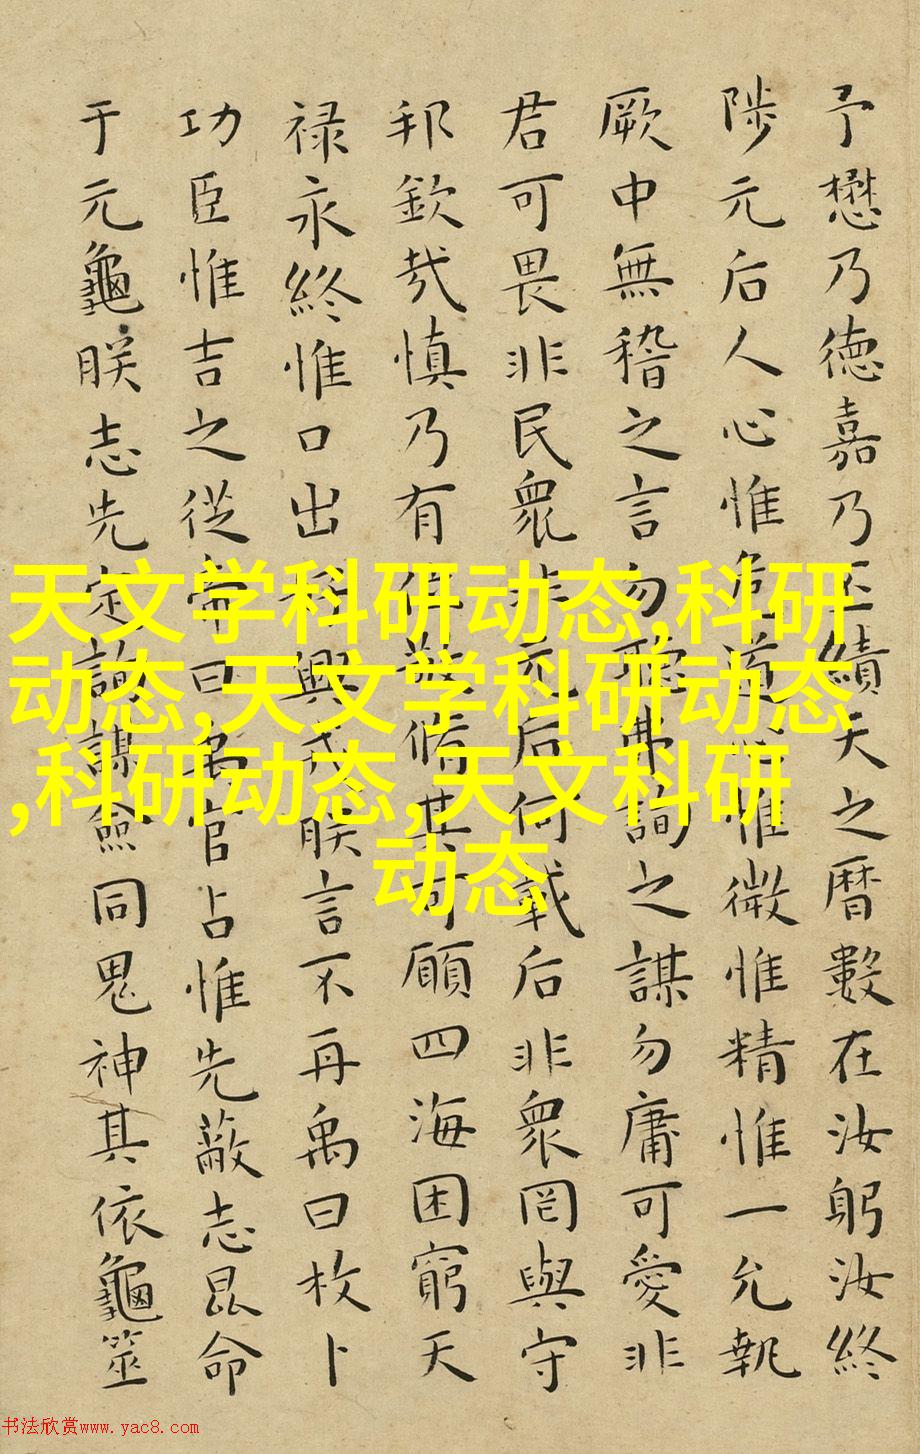 予懋乃德嘉乃丕績天之暦數在汝躬汝終
陟元后人心惟危道心惟微惟精惟一允執
厥中無稽之言勿聽弗詢之謀勿庸可愛非
君可畏非民衆非元后何戴后非衆罔與守
邦欽哉慎乃有位敬脩其可願四海困窮天
禄永終惟口出好興戎朕言不再禹曰枚卜
功臣惟吉之從帝曰禹官占惟先蔽志昆命
于元龜朕志先定詢謀僉同鬼神其依龜筮
天文学科研动态,科研
动态,天文学科研动态
,科研动态,天文科研
动态
书法欣赏www.yac8.com